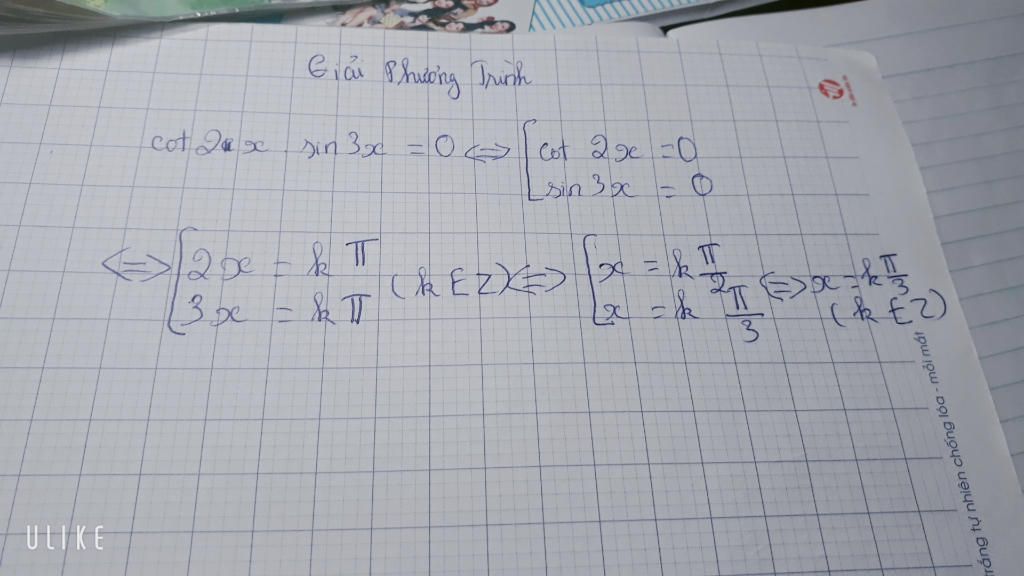 Giải Phương Trình
cot 2x sin 3x = 0 ⇔ [ cot 2x = 0
sin 3x = 0
⇔ [ 2x = kπ
3x = kπ (k ∈ Z) ⇔ [ x = k π/2
x = k π/3 ⇔ x = k π/3
(k ∈ Z)
trắng tự nhiên chống lóa - mỏi mắt
ULIKE